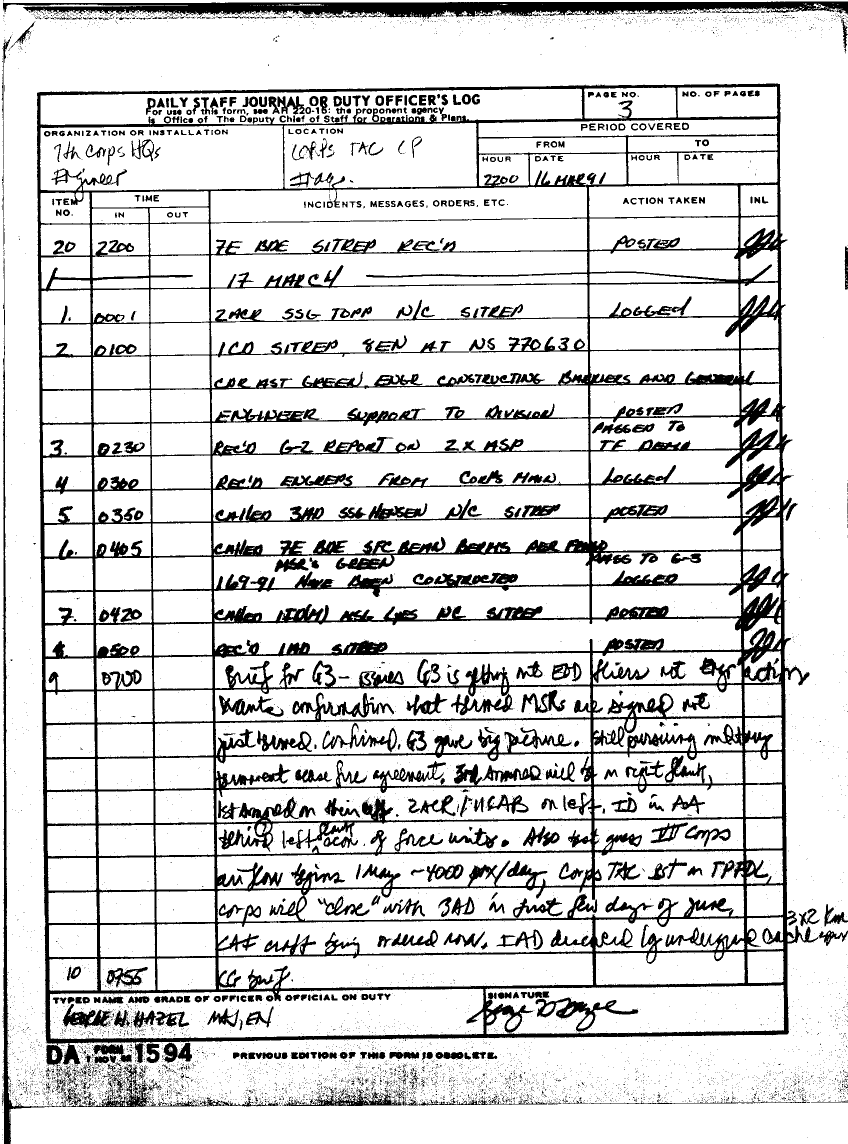 DAILY STAFF JOURNAL OR DUTY OFFICER'S LOG
For use of this form, see AR 220-15: the proponent agency
is Office of The Deputy Chief of Staff for Operations & Plans.
PAGE NO.
3
NO. OF PAGES
ORGANIZATION OR INSTALLATION
7th Corps HQs
Engineer
LOCATION
CORPS TAC CP
Iraq
PERIOD COVERED
FROM
TO
HOUR DATE HOUR DATE
2200 16 MAR 91
ITEM NO.
TIME
IN OUT
INCIDENTS, MESSAGES, ORDERS, ETC.
ACTION TAKEN
INL
20 2200 7E BDE SITREP REC'D POSTED
17 MARCH
1. 0001 2ACR SSG TOPP N/C SITREP LOGGED
2. 0100 1CD SITREP, 8EN AT NS 770630
CDR AST GREEN, ENGR CONSTRUCTING BARRIERS AND GENERAL
ENGINEER SUPPORT TO DIVISION POSTED
3. 0230 REC'D G-2 REPORT ON 2X ASP PASSED TO TF DEMO
4 0300 REC'D ENGREPS FROM CORPS MAIN. LOGGED
5 0350 CALLED 3AD SSG HENSEN N/C SITREP POSTED
6. 0405 CALLED 7E BDE SFC BEAN BERMS PER
MSR'S GREEN PASS TO G-3
169-91 HAVE BEEN CONSTRUCTED LOGGED
7. 0420 CALLED 1ID(M) MSG NC SITREP POSTED
8. 0500 REC'D 1AD SITREP POSTED
9 0700 Brief for G3 - issues G3 is getting into EOD fliers not Engr action
Wants confirmation that bermed MSRs are signed not
just bermed. Confirmed. G3 gave big picture. Still pursuing military
permanent cease fire agreement. 3rd Armored will be on right flank,
1st Armored on their left. 2ACR/ on left. ID in AA
behind left flank of force units. Also best guess VII Corps
air flow begins 1 May ~4000 /day, Corps TAC 1st on TPFDL,
corps will "close" with 3AD in first few days of June,
CAT craft being ordered now. 1AD discovered lg underground cache
3x2 Km
10 0755 CG brief.
TYPED NAME AND GRADE OF OFFICER OR OFFICIAL ON DUTY
GEORGE W. HAZEL MAJ, EN
SIGNATURE
DA FORM 1594
PREVIOUS EDITION OF THIS FORM IS OBSOLETE.